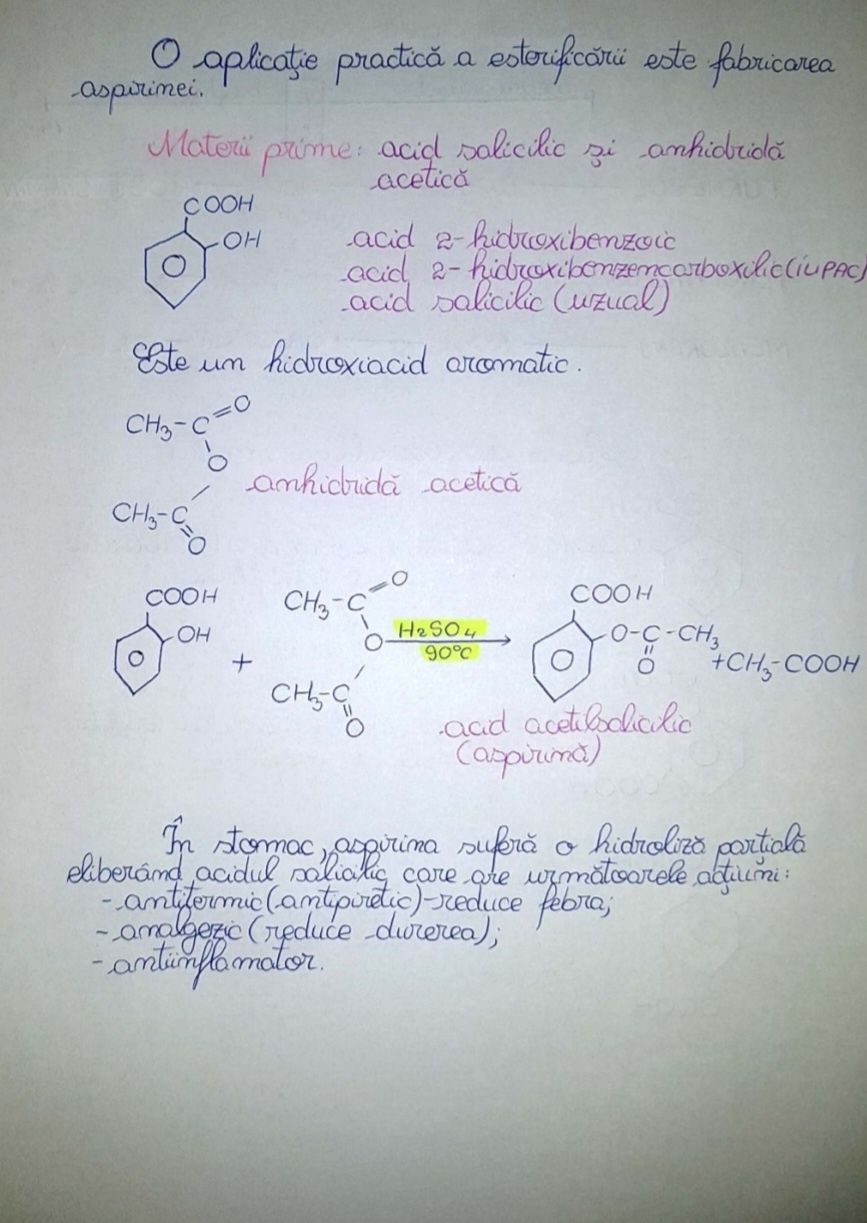 O aplicație practică a esterificării este fabricarea
aspirinei.
Materii prime: acid salicilic și anhidridă
acetică
COOH
OH
acid 2-hidroxibenzoic
acid 2-hidroxibenzencarboxilic (IUPAC)
acid salicilic (uzual)
Este un hidroxiacid aromatic.
CH₃-C=O
O
anhidridă acetică
CH₃-C
O
COOH
OH
+
CH₃-C=O
O
CH₃-C
O
H₂SO₄
90°C
COOH
O-C-CH₃
O
+CH₃-COOH
acid acetilsalicilic
(aspirină)
În stomac, aspirina suferă o hidroliză parțială
eliberând acidul salicilic care are următoarele acțiuni:
-antitermic (antipiretic)-reduce febra;
-analgezic (reduce durerea);
-antiinflamator.